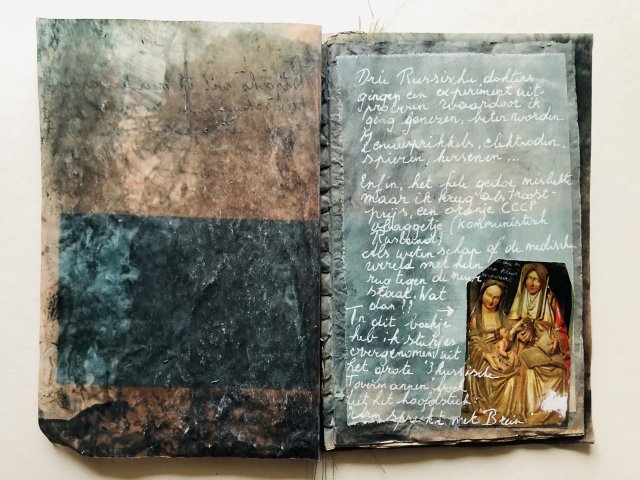 Drie Russische dokters
gingen een experiment uit-
proberen waardoor ik
ging genezen, beter worden
Zenuwprikkels, elektroden,
spieren, hersenen ...
Enfin, het hele gedoe mislukte
maar ik kreeg als troost-
prijs, een oranje CCCP
vlaggetje (kommunistisch
Rusland)
Als wetenschap of de medische
wereld met hun
rug tegen de muur
staat. Wat
dan!?
In dit boekje →
heb ik stukjes
overgenomen uit
het eerste '3 Russische
Tovermannen boek
uit het hoofdstuk:
Arm spreekt met Brein